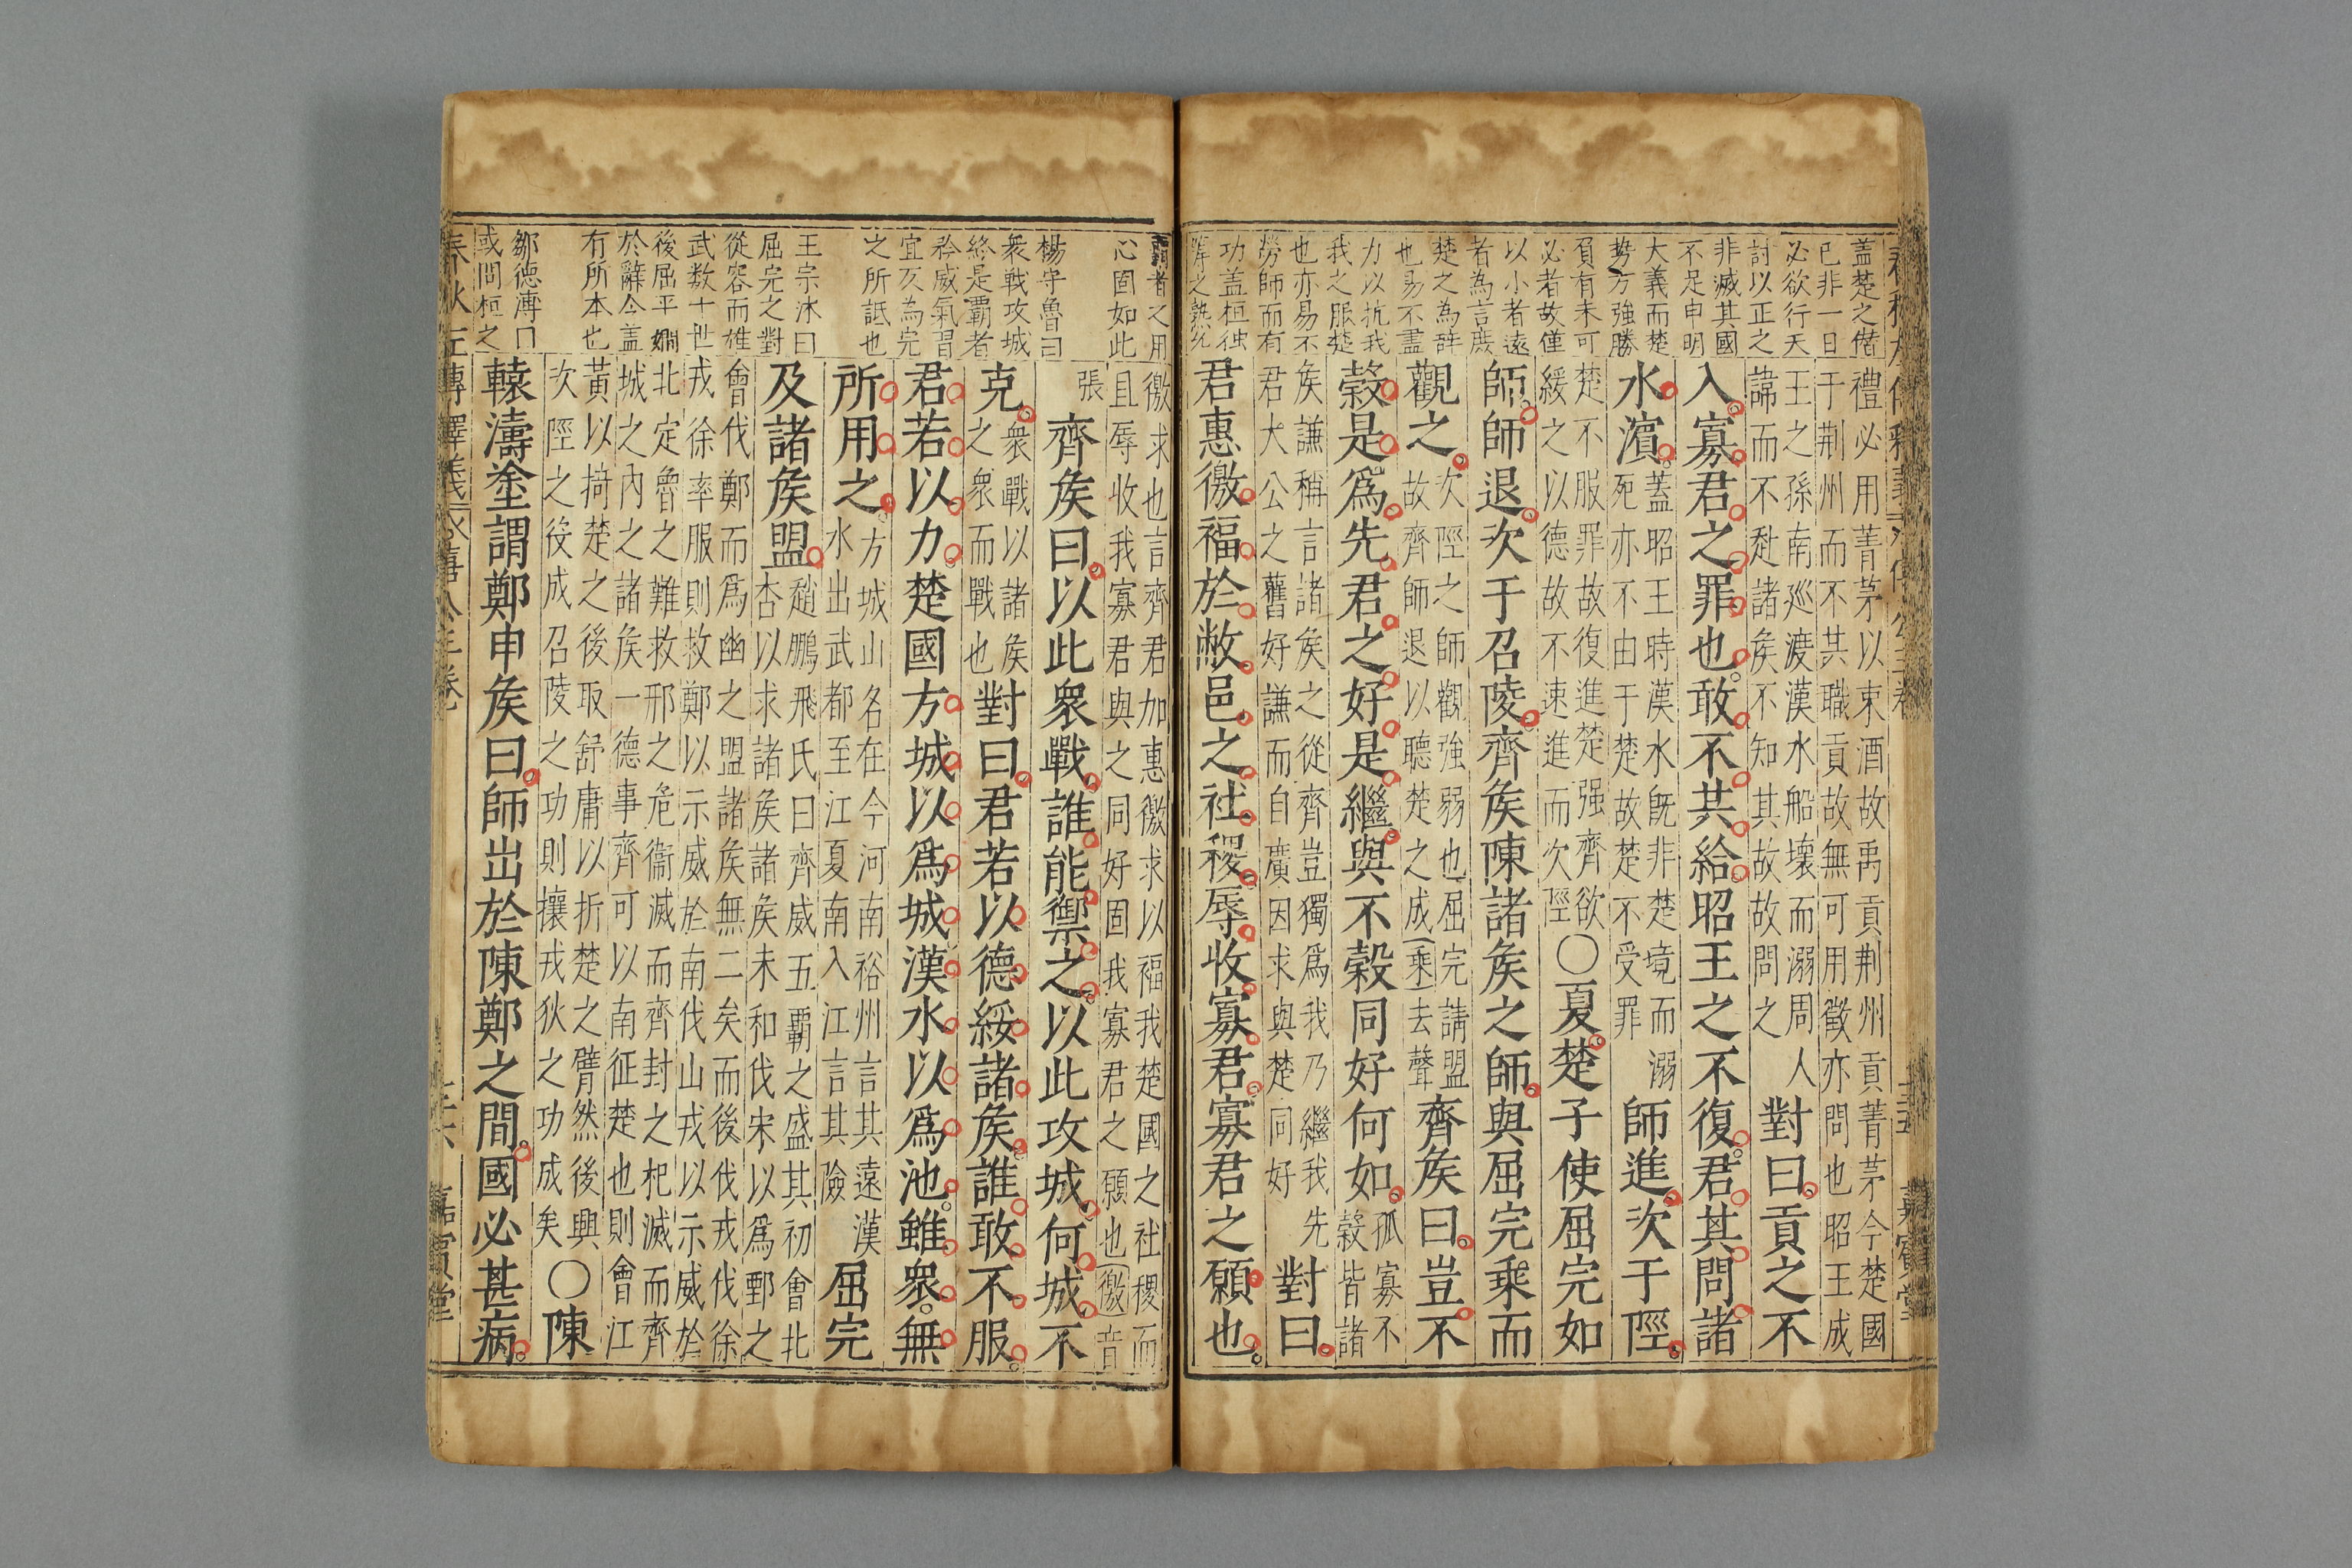 蓋楚之僭
已非一日
必欲行天
討以正之
非滅其國
不足申明
大義而楚
勢方強勝
負有未可
必者故僅
以小者遠
者為言庶
楚之為辞
也易不盡
力以抗我
我之服楚
也亦易不
勞師而有
功蓋桓伯
禮必用菁茅以束酒故禹貢荆州貢菁茅今楚國
于荆州而不共職貢故無可用徵亦問也昭王成
王之孫南廵渡漢水船壞而溺周人
諱而不赴諸矦不知其故故問之
對曰貢之不
入寡君之罪也敢不共給昭王之不復君其問諸
水濱
蓋昭王時漢水旣非楚竟而溺
死亦不由于楚故楚不受罪
師進次于陘
楚不服罪故復進楚强齊欲
緩之以德故不速進而次陘
〇夏楚子使屈完如
師師退次于召陵齊矦陳諸矦之師與屈完乘而
觀之
次陘之師觀強弱也屈完請盟
故齊師退以聽楚之成(乘)去聲
齊矦曰豈不
穀是爲先君之好是繼與不穀同好何如
孤寡不
穀皆諸
矦謙稱言諸矦之從齊豈獨爲我乃繼我先
君大公之舊好謙而自廣因求與楚同好
對曰
君惠徼福於敝邑之社稷辱收寡君寡君之願也
霸者之用
心固如此
楊守魯曰
衆戰攻城
終是覇者
矜威氣習
宜亥為完
之所詆也
王宗沐曰
屈完之對
從容而雄
武数十世
後屈平嫺
於辭令盖
有所本也
鄒德溥曰
或問桓之
徼求也言齊君加惠徼求以福我楚國之社稷而
且辱收我寡君與之同好固我寡君之願也(徼)音
張
齊矦曰以此衆戰誰能禦之以此攻城何城不
克
衆戰以諸矦
之衆而戰也
對曰君若以德綏諸矦誰敢不服
君若以力楚國方城以爲城漢水以爲池雖衆無
所用之
方城山名在今河南裕州言其遠漢
水出武都至江夏南入江言其險
屈完
及諸矦盟
趙鵬飛氏曰齊威五霸之盛其初會北
杏以求諸矦諸矦未和伐宋以爲鄄之
會伐鄭而爲幽之盟諸矦無二矣而後伐戎伐徐
戎徐率服則救鄭以示威於南伐山戎以示威於
北定魯之難救邢之危衞滅而齊封之杞滅而齊
城之內之諸矦一德事齊可以南征楚也則會江
黃以掎楚之後取舒庸以折楚之臂然後興
次陘之役成召陵之功則攘戎狄之功成矣
〇陳
轅濤塗謂鄭申矦曰師出於陳鄭之間國必甚病